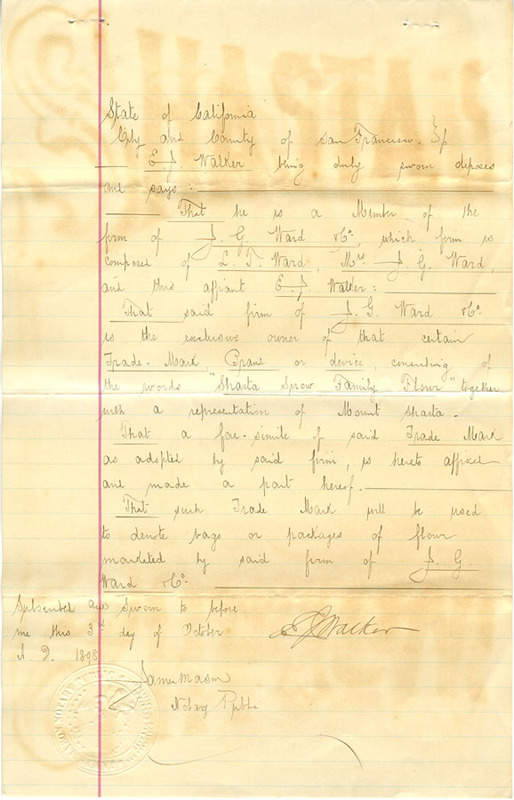 State of California
City and County of San Francisco. } Ss
E. J. Walker being duly sworn deposes
and says:
That he is a Member of the
firm of J. G. Ward & Co., which firm is
composed of L. T. Ward, Mrs J. G. Ward,
and this affiant E. J. Walker:
That said firm of J. G. Ward & Co.
is the exclusive owner of that certain
Trade-Mark, Brand or device, consisting of
the words "Shasta Snow Family Flour" together
with a representation of Mount Shasta.
That a fac-simile of said Trade Mark
as adopted by said firm, is hereto affixed
and made a part hereof.
That such Trade Mark will be used
to denote bags or packages of flour
marketed by said firm of J. G.
Ward & Co.
Subscribed and Sworn to before
me this 3rd day of October
A. D. 1898
E J Walker
James Mason
Notary Public